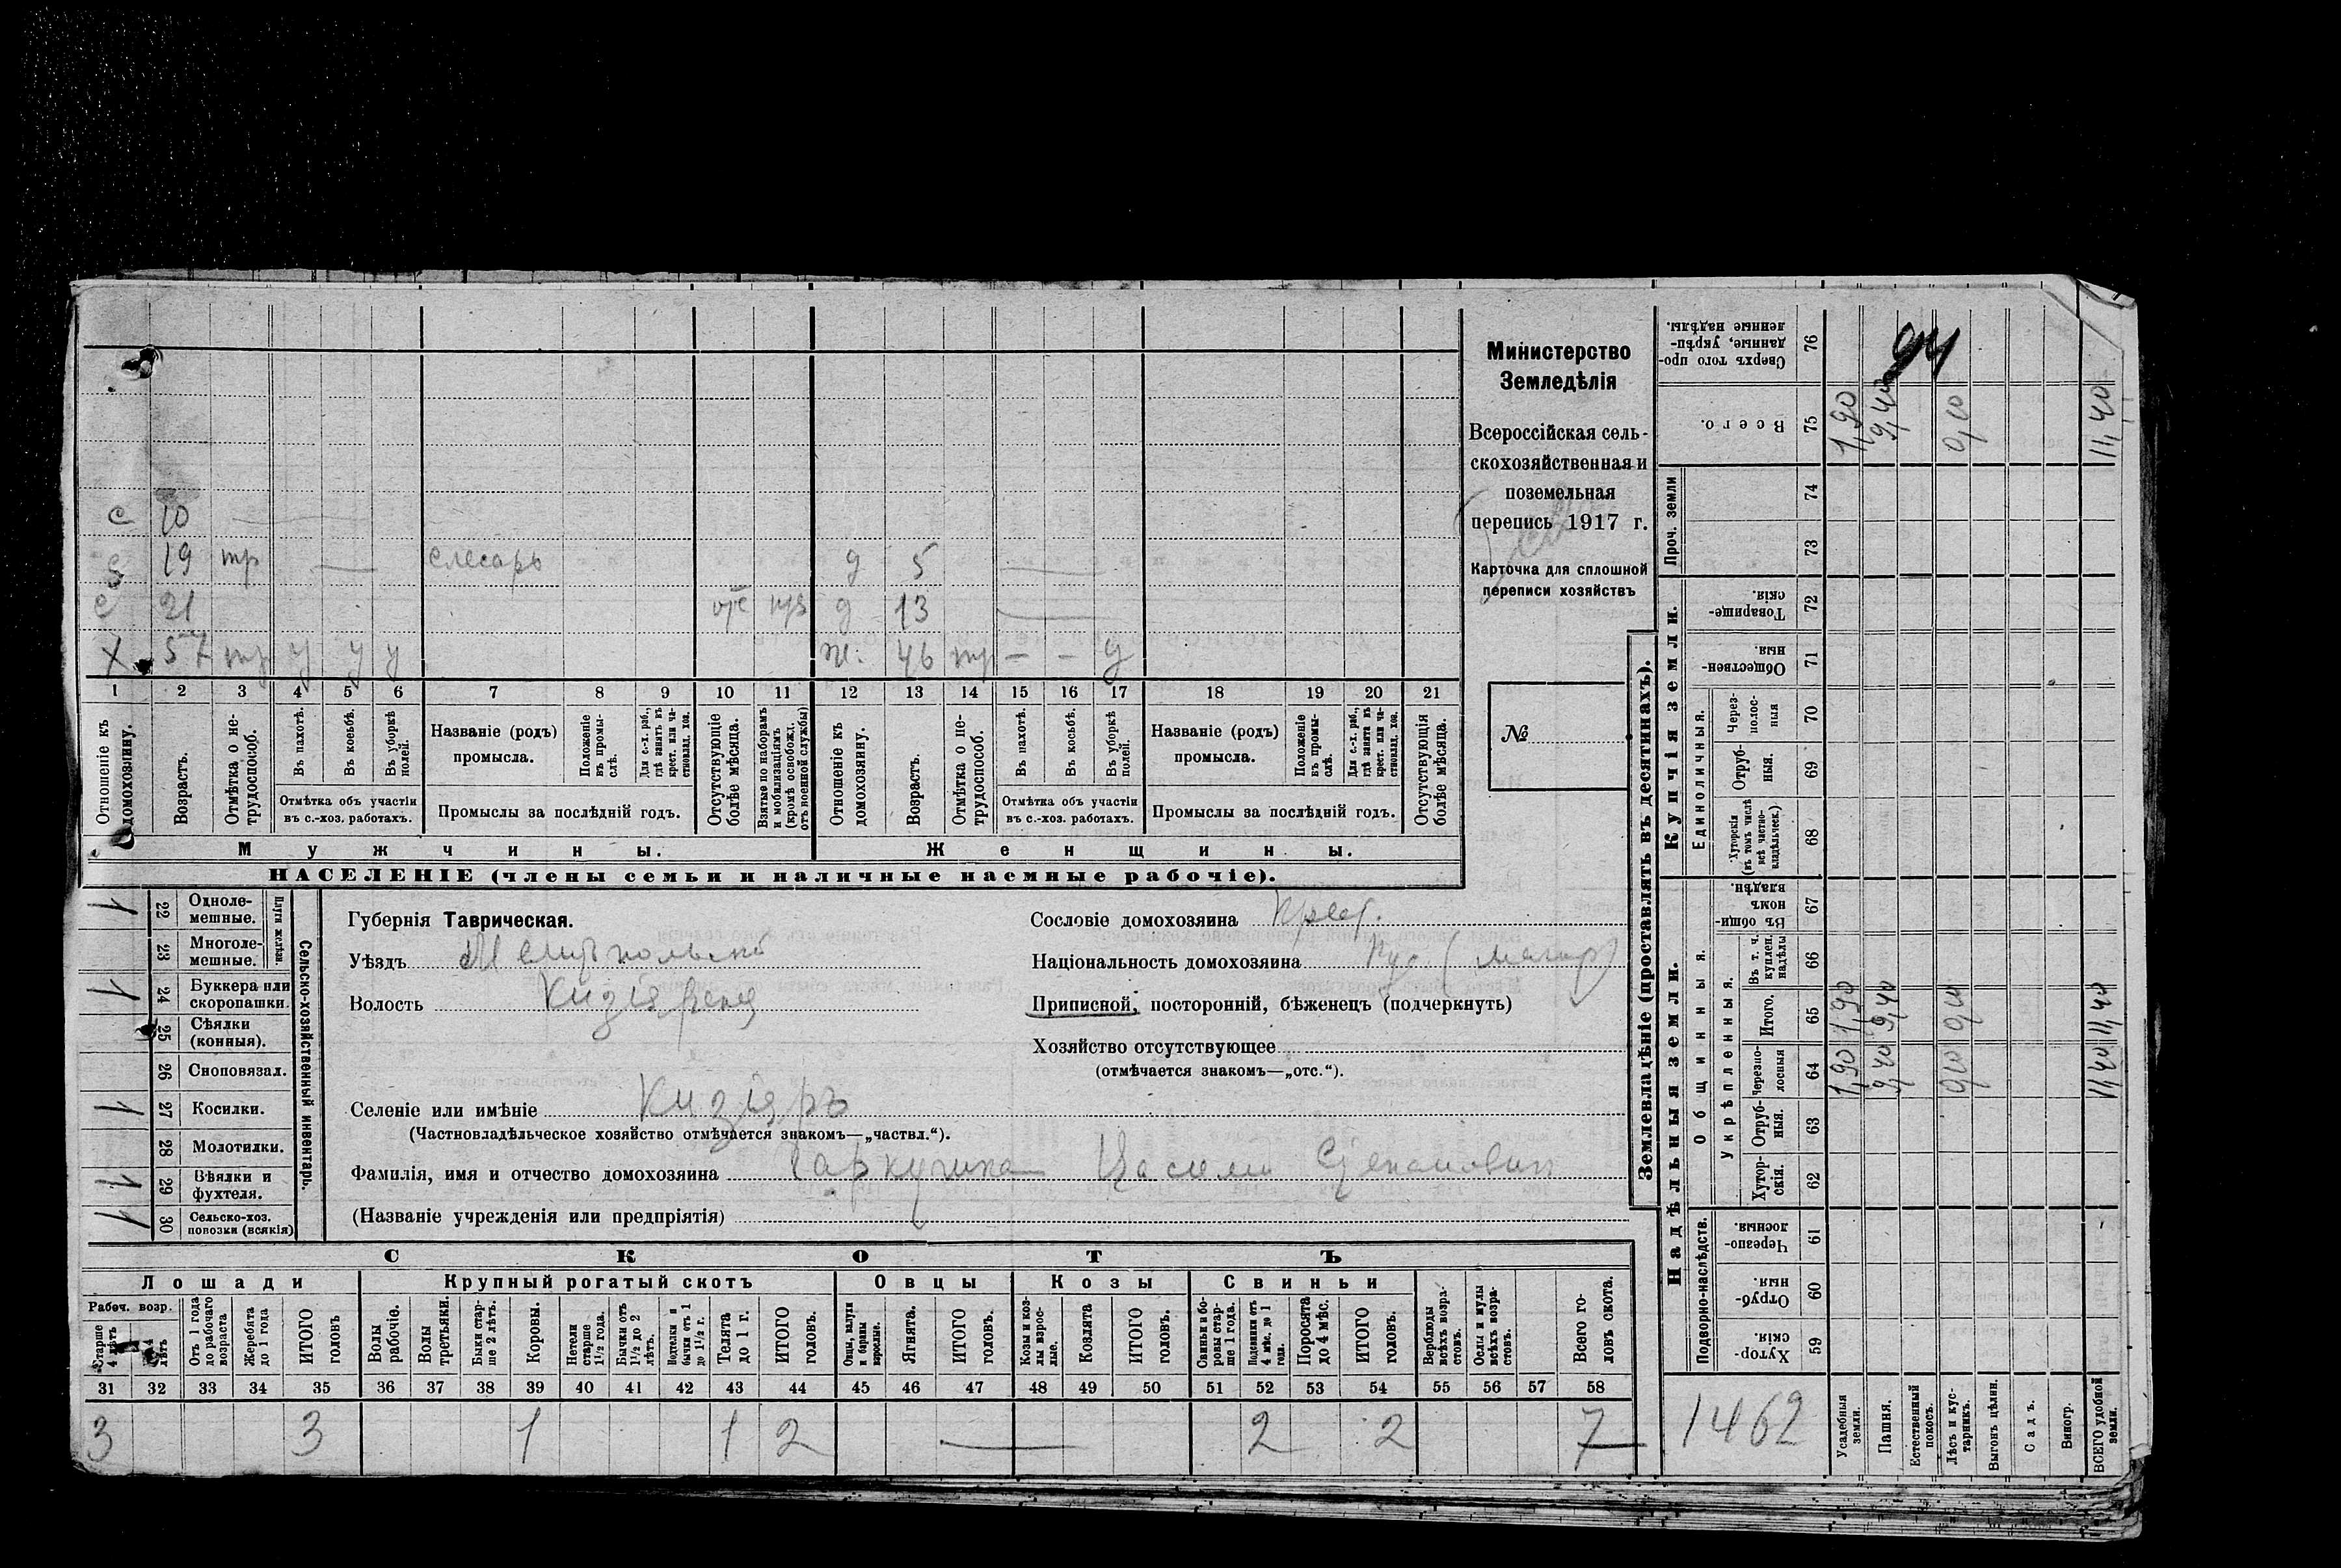 Министерство
Земледѣлія
Всероссійская сель-
скохозяйственная и
поземельная
перепись 1917 г.
Карточка для сплошной
переписи хозяйствъ
№
с 10
19 тр — слесарь д 5 —
с 21 отс д 13 —
х 57 тр у у у ж. 46 тр — — у
1 2 3 4 5 6 7 8 9 10 11 12 13 14 15 16 17 18 19 20 21
Отношеніе къ домохозяину.
Возрастъ.
Отмѣтка о не-трудоспособ.
Въ пахотѣ.
Въ косьбѣ.
Въ уборкѣ полей.
Отмѣтка объ участіи
въ с.-хоз. работахъ.
Названіе (родъ)
промысла.
Положеніе въ промы-слѣ.
Для с.-х. раб., гдѣ занятъ въ крест. или ча-стновлад. хоз.
Промыслы за послѣдній годъ.
Отсутствующіе болѣе мѣсяца.
Взятые по наборамъ и мобилизаціямъ (кромѣ освобожд. отъ военной службы)
Отношеніе къ домохозяину.
Возрастъ.
Отмѣтка о не-трудоспособ.
Въ пахотѣ.
Въ косьбѣ.
Въ уборкѣ полей.
Отмѣтка объ участіи
въ с.-хоз. работахъ.
Названіе (родъ)
промысла.
Положеніе въ промы-слѣ.
Для с.-х. раб., гдѣ занята въ крест. или ча-стновлад. хоз.
Промыслы за послѣдній годъ.
Отсутствующія болѣе мѣсяца.
Мужчины.
Женщины.
НАСЕЛЕНІЕ (члены семьи и наличные наемные рабочіе).
Сельско-хозяйственный инвентарь.
Плуги желѣзн.
1 22 Одноле-мешные.
23 Многоле-мешные.
1 24 Буккера или скоропашки.
25 Сѣялки (конныя).
26 Сноповязал.
1 27 Косилки.
28 Молотилки.
1 29 Вѣялки и фухтеля.
1 30 Сельско-хоз. повозки (всякія)
Губернія Таврическая.
Уѣздъ Мелитопольскій
Волость
Селеніе или имѣніе Кизіяръ
(Частновладѣльческое хозяйство отмѣчается знакомъ—„частвл.“).
Фамилія, имя и отчество домохозяина Степановичъ
(Названіе учрежденія или предпріятія)
Сословіе домохозяина крест.
Національность домохозяина
Приписной, посторонній, бѣженецъ (подчеркнуть)
Хозяйство отсутствующее
(отмѣчается знакомъ—„отс.“).
СКОТЪ
Лошади
Крупный рогатый скотъ
Овцы
Козы
Свиньи
Рабоч. возр.
Старше 4 лѣтъ
лѣтъ
Отъ 1 года до рабочаго возраста
Жеребята до 1 года
ИТОГО головъ
Волы рабочіе.
Волы третьяки.
Быки стар-ше 2 лѣтъ.
Коровы.
Нетели старше 1½ года.
Бычки отъ 1½ до 2 лѣтъ.
Подтелки и бычки отъ 1 до 1½ г.
Телята до 1 г.
ИТОГО головъ.
Овцы, валухи и бараны взрослые.
Ягнята.
ИТОГО головъ.
Козы и коз-лы взрос-лые.
Козлята
ИТОГО головъ.
Свиньи и бо-ровы стар-ше 1 года.
Подсвинки отъ 4 мѣс. до 1 года.
Поросята до 4 мѣс.
ИТОГО головъ.
Верблюды всѣхъ возра-стовъ.
Ослы и мулы всѣхъ возра-стовъ.
Всего го-ловъ скота.
31 32 33 34 35 36 37 38 39 40 41 42 43 44 45 46 47 48 49 50 51 52 53 54 55 56 57 58
3 3 1 1 2 — 2 2 7
Землевладѣніе (проставлять въ десятинахъ).
Надѣльныя земли.
Купчія земли.
Проч. земли
Подворно-наслѣдств.
Общинныя.
Укрѣпленныя.
Единоличныя.
Хутор-скія. 59
Отруб-ныя. 60
Черезпо-лосныя. 61
Хутор-скія. 62
Отруб-ныя. 63
Черезпо-лосныя 64 1,90 9,40 11,40
Итого. 65 1,90 9,40 11,40
Въ т. ч. куплен. надѣлы 66
Въ общин-номъ владѣн. 67
Хуторскія (въ томъ числѣ всѣ частно-владѣльческ.) 68
Отруб-ныя. 69
Через-полос-ныя 70
Обществен-ныя. 71
Товарище-скія. 72
73
74
Всего. 75 1,90 9,40 0,10 11,40
Сверхъ того про-данные, укрѣп-ленные надѣлы. 76
94
1462
Усадебныя земли.
Пашня.
Естественный покосъ.
Лѣсъ и кус-тарникъ.
Выгонъ цѣлин.
Садъ.
Виногр.
ВСЕГО удобной земли.